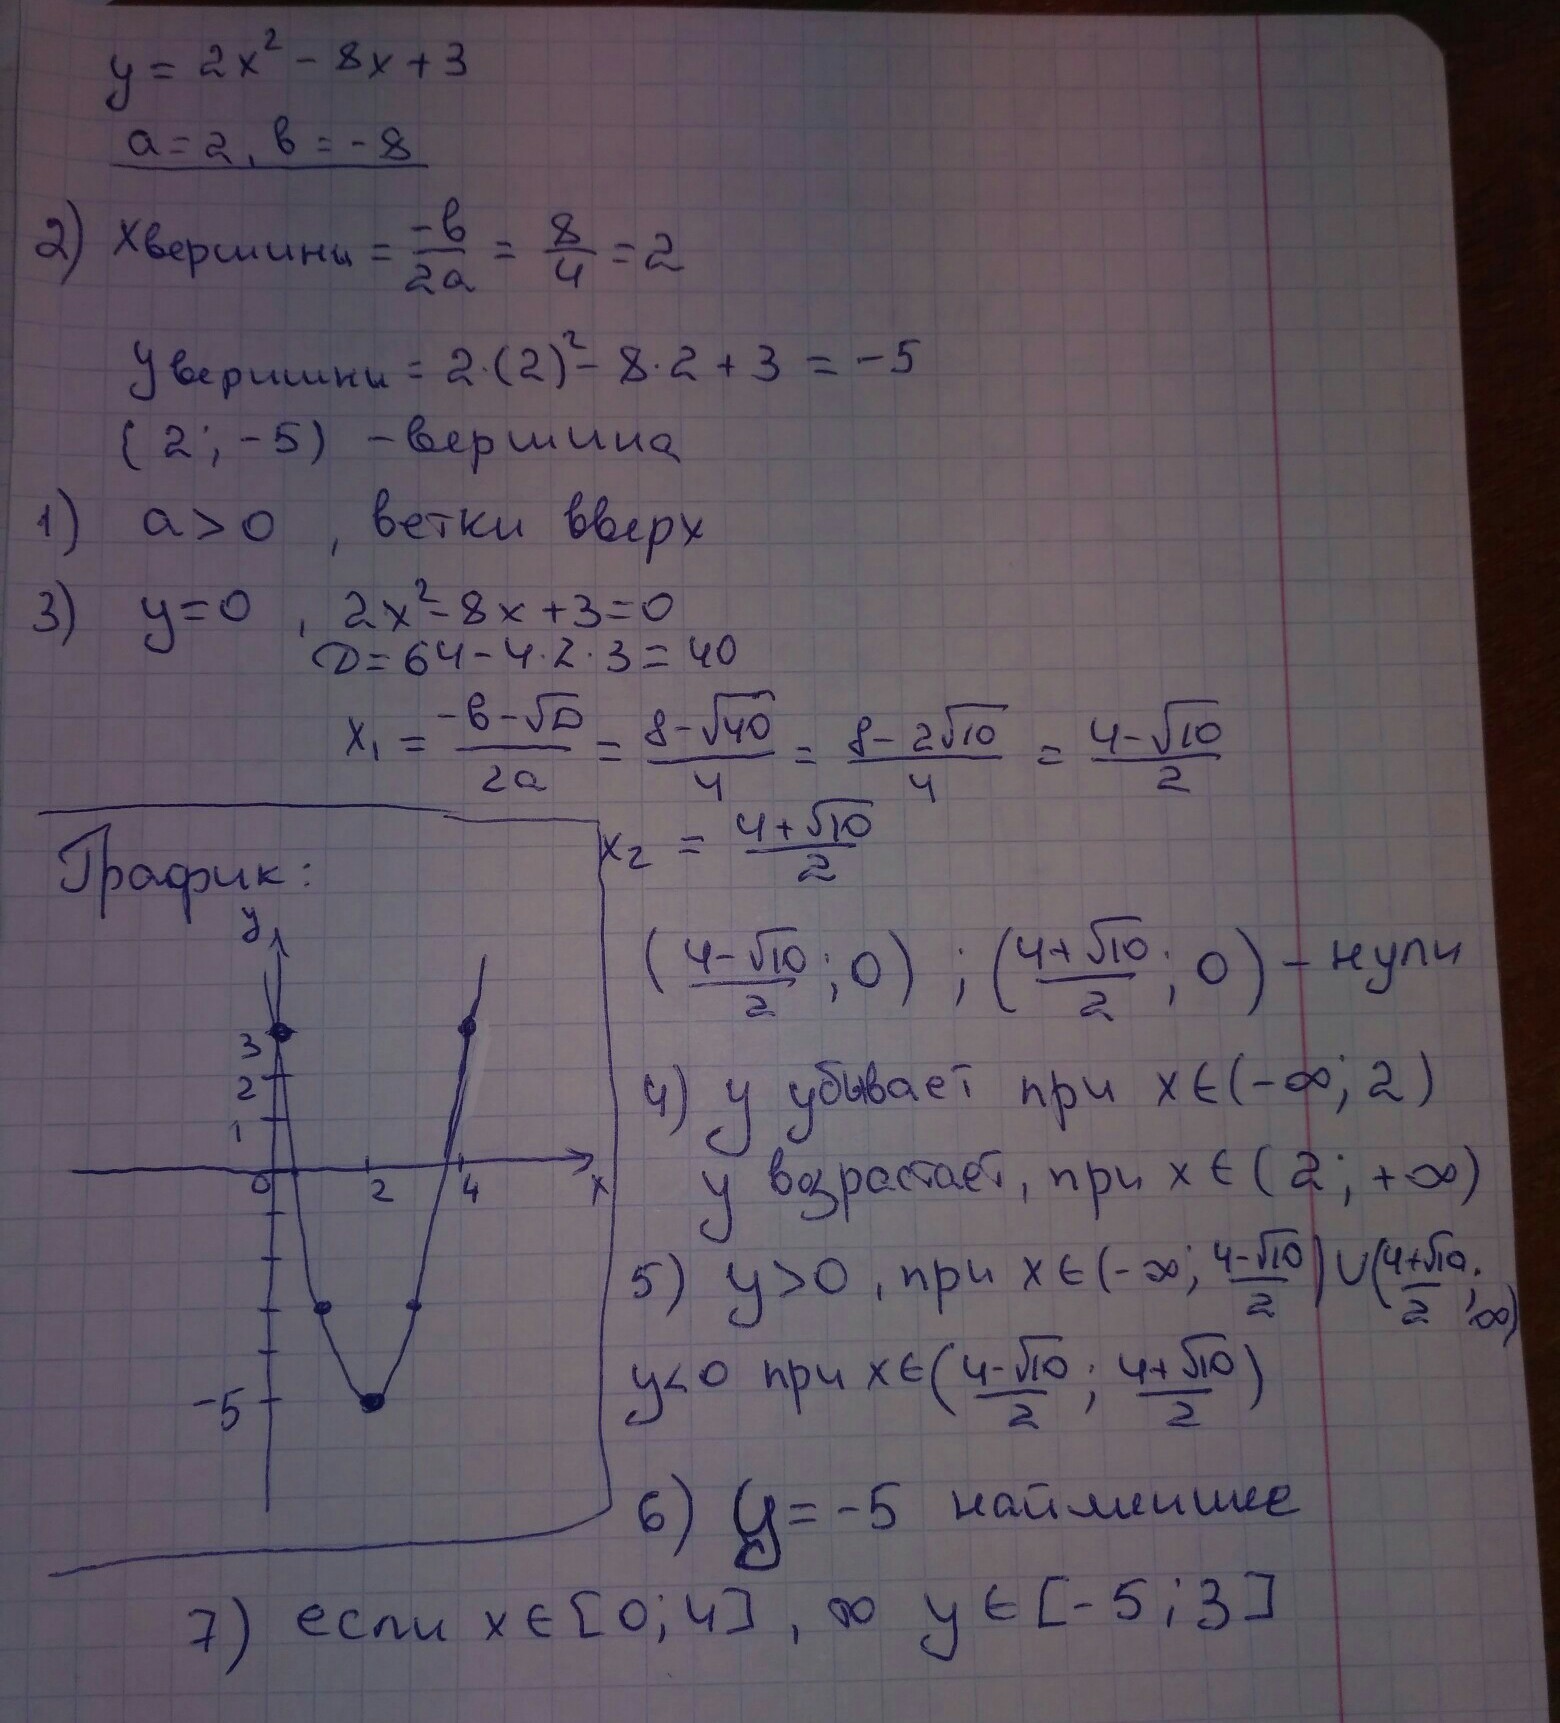 y = 2x² - 8x + 3
a = 2, в = -8
2) x вершины = -в/2a = 8/4 = 2
y вершины = 2·(2)² - 8·2 + 3 = -5
(2; -5) - вершина
1) a > 0, ветки вверх
3) y = 0, 2x² - 8x + 3 = 0
D = 64 - 4·2·3 = 40
x₁ = (-в - √D)/2a = (8 - √40)/4 = (8 - 2√10)/4 = (4 - √10)/2
x₂ = (4 + √10)/2
График:
y
3
2
1
0 2 4 x
-5
((4 - √10)/2; 0); ((4 + √10)/2; 0) - нули
4) y убывает при x ∈ (-∞; 2)
y возрастает, при x ∈ (2; +∞)
5) y > 0, при x ∈ (-∞; (4 - √10)/2) ∪ ((4 + √10)/2; ∞)
y < 0 при x ∈ ((4 - √10)/2; (4 + √10)/2)
6) y = -5 наименшее
7) если x ∈ [0; 4], то y ∈ [-5; 3]